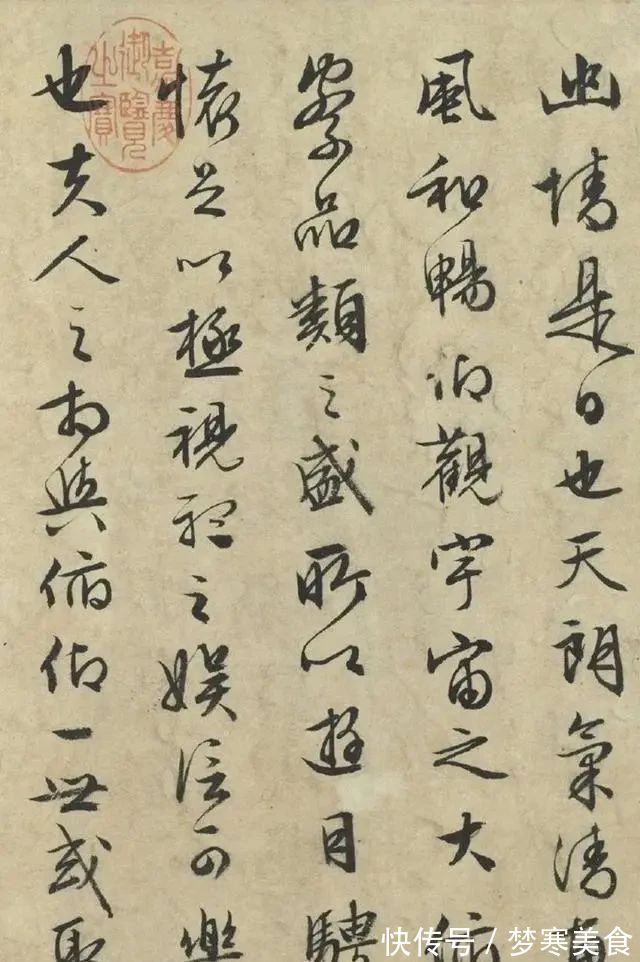 幽情是日也天朗氣清惠
風和暢仰觀宇宙之大俯
察品類之盛所以遊目騁
懷足以極視聽之娛信可樂
也夫人之相與俯仰一世或取
嘉慶
御覽
之寶
快传号 / 梦寒美食